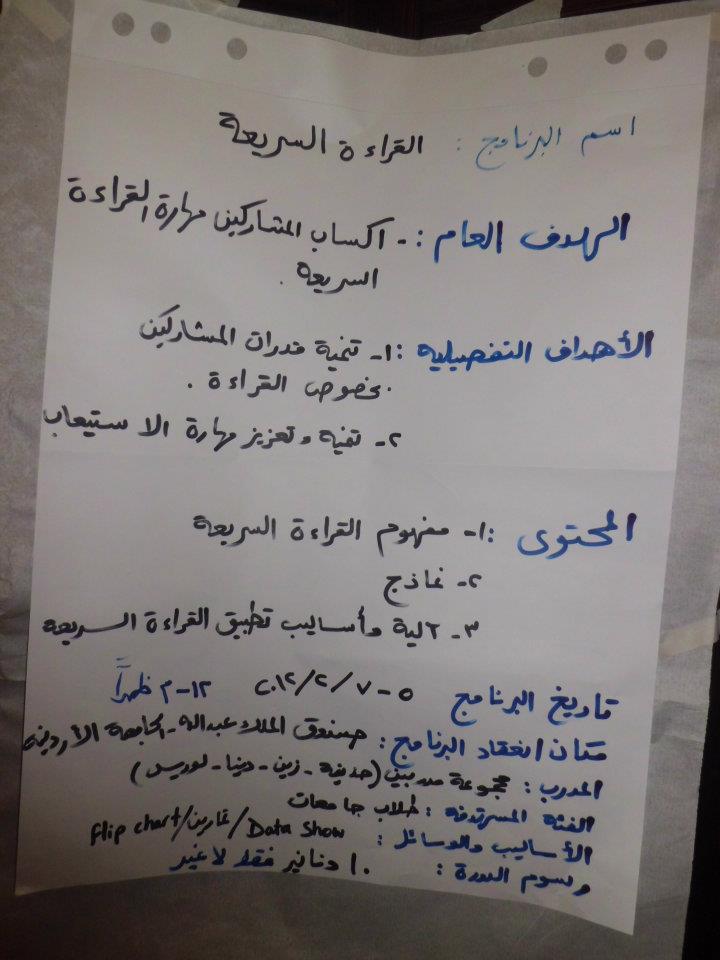 اسم البرنامج : القراءة السريعة
الهدف العام :- اكساب المشاركين مهارة القراءة
السريعة .
الأهداف التفصيلية :١- تنمية قدرات المشاركين
بخصوص القراءة .
٢- تنمية وتعزيز مهارة الاستيعاب
المحتوى :١- مفهوم القراءة السريعة
٢- نماذج
٣- آلية وأساليب تطبيق القراءة السريعة
تاريخ البرنامج ٥-٧/٢/٢٠١٢ ١٢-٣ ظهراً
مكان انعقاد البرنامج : صندوق الملك عبدالله - الجامعة الأردنية
المدرب : مجموعة مدربين ( - زين - دينا - لوريس)
الفئة المستهدفة : طلاب جامعات
الأساليب والوسائل : Data Show/تمارين/flip chart
رسوم الدورة : ١٠ دنانير فقط لا غير